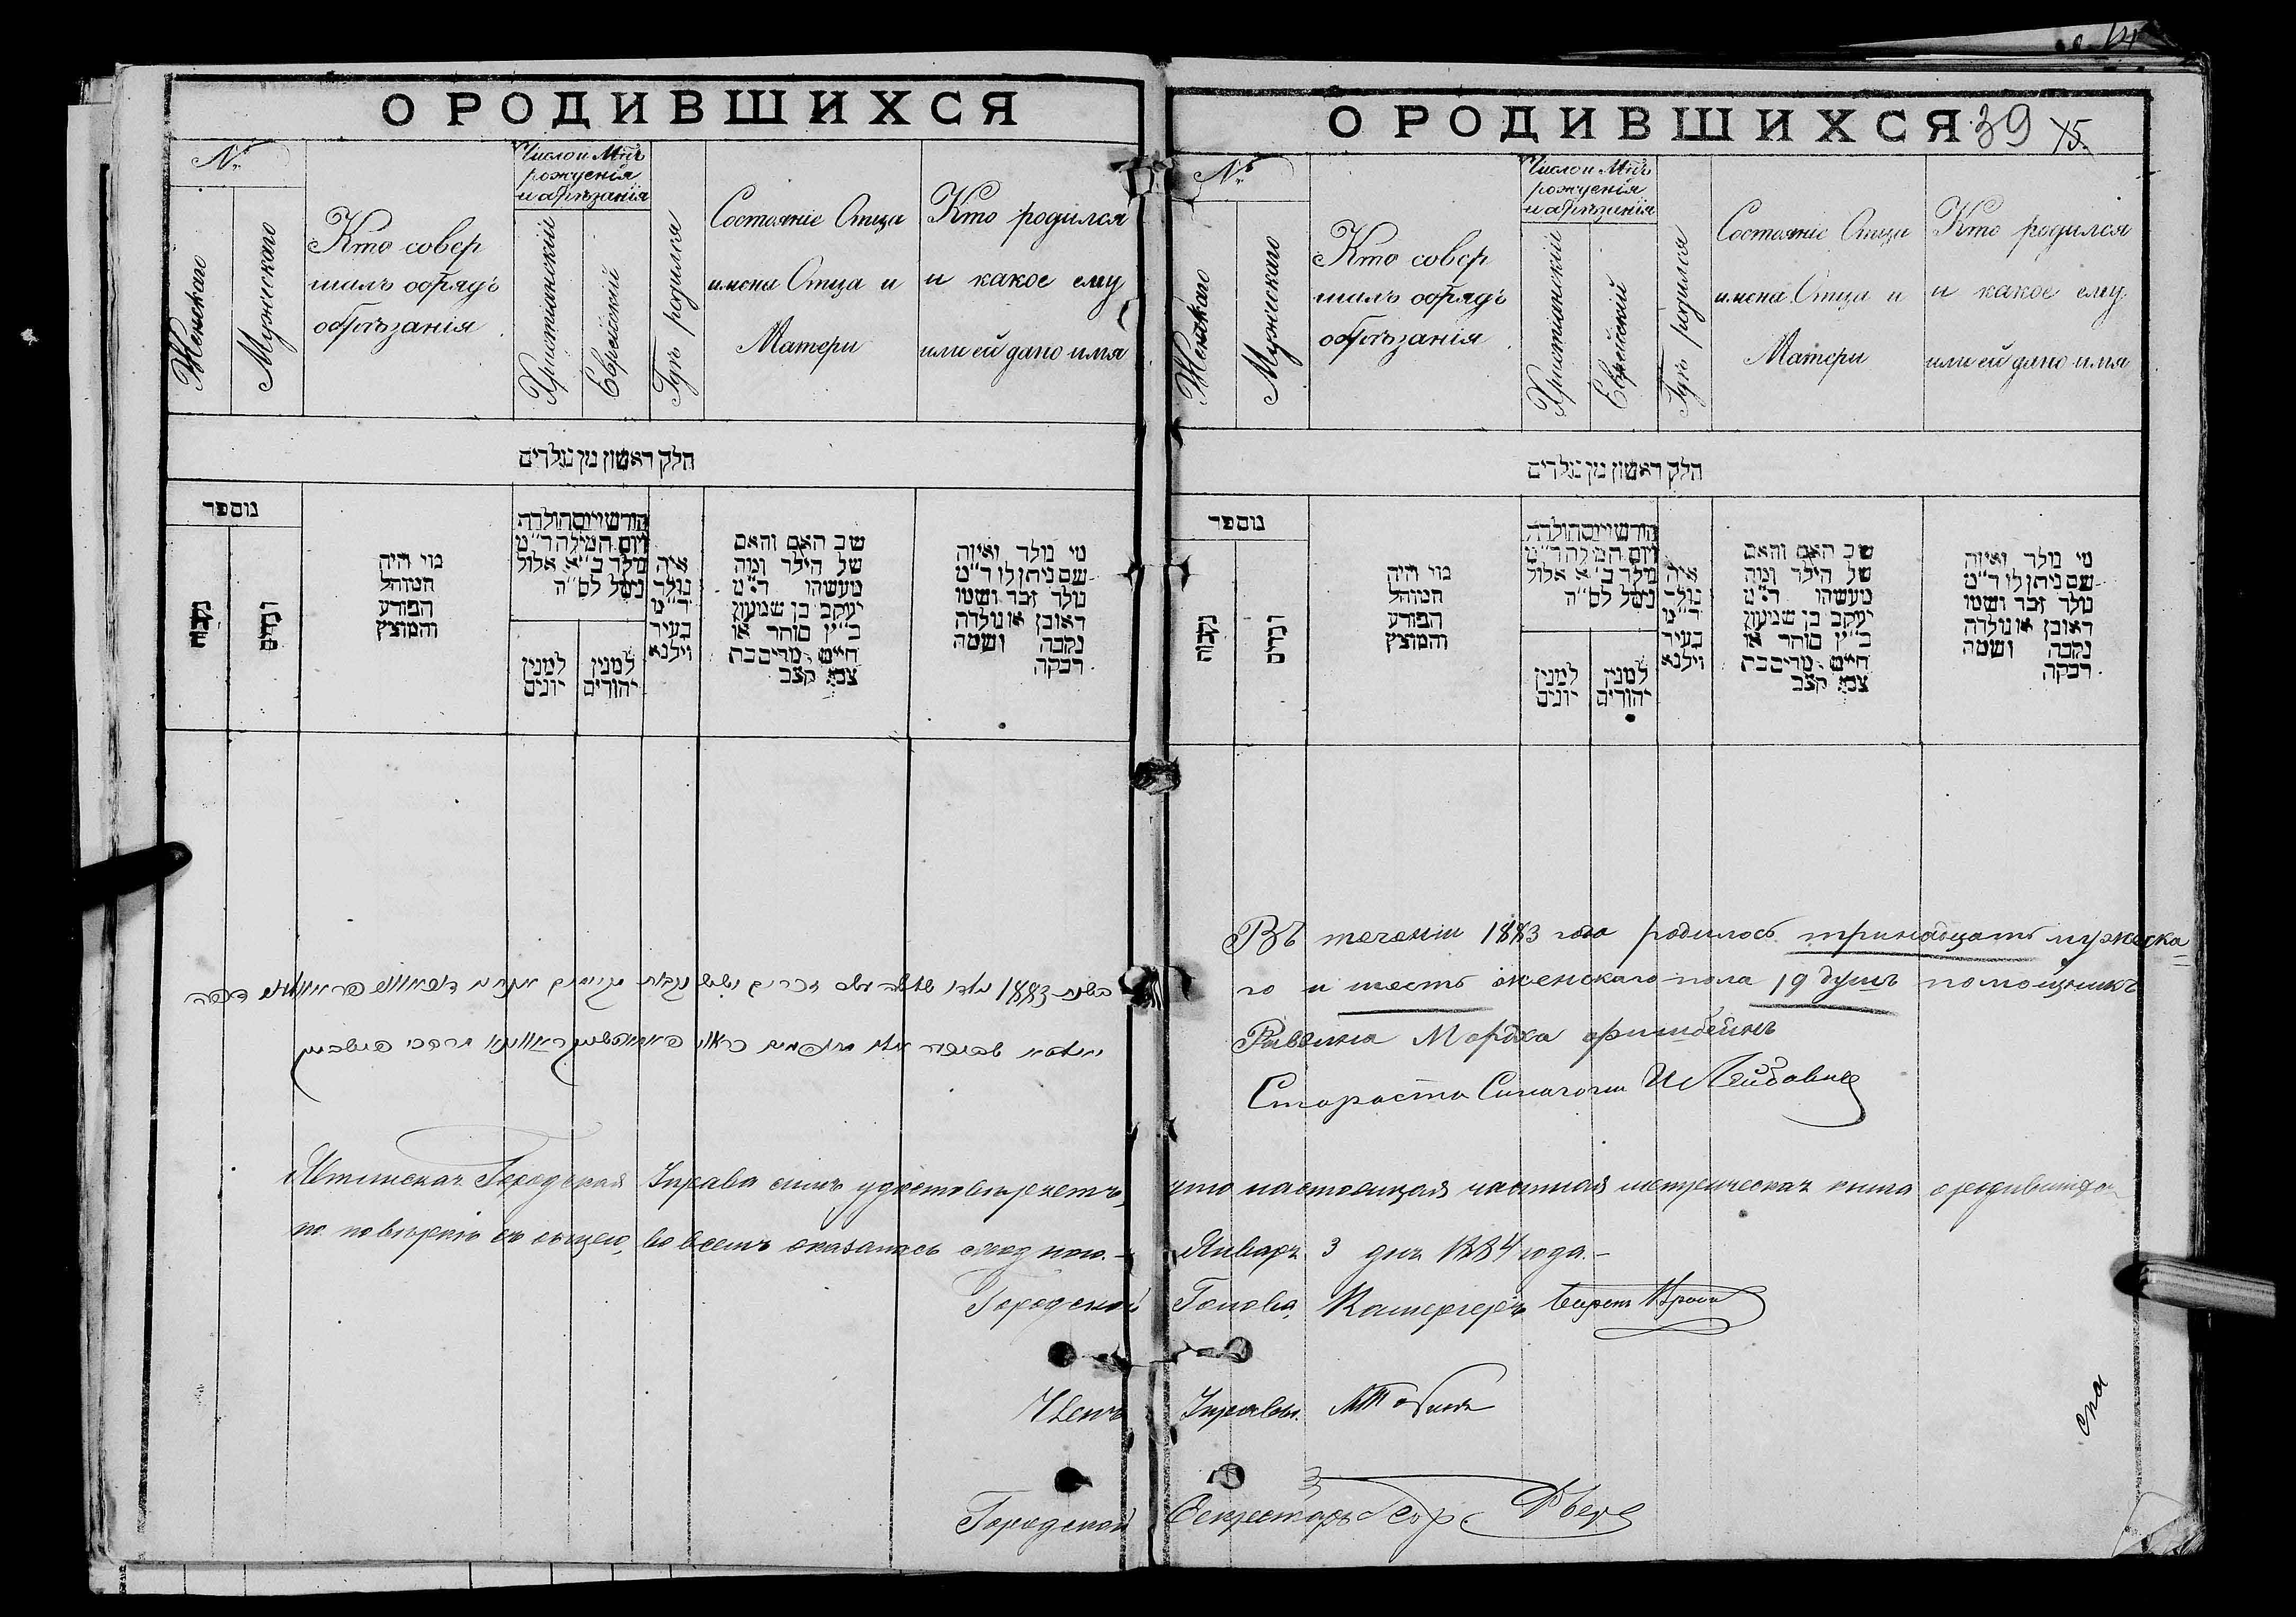 О РОДИВШИХСЯ
№
Женскаго
Мужескаго
Кто совер
шалъ обрядъ
обрѣзанія
Число и Мѣцъ
рожденія
и обрѣзанія
Христіанскій
Еврейскій
Гдѣ родился
Состояніе Отца
имена Отца и
Матери
Кто родился
и какое ему
или ей дано имя
חלק ראשון מן נולדים
מוספר
נקבות
זכרים
מי היה
המוהל
הפורע
והמוצץ
חודש ויום הולדה
ויום המילה ד״מ
נולד כ״א אלול
נימל לס״ה
למנין
יונים
למנין
יהודים
איה
נולד
ד״מ
בעיר
וילנא
שם האב והאם
של הילד ומה
מעשהו ד״מ
יעקב בן שמעון
כ״ץ סוחר או
חייט מרים בת
צבי קצב
מי נולד ואיזה
שם ניתן לו ד״מ
נולד זכר ושמו
ראובן או נולדה
נקבה ושמה
רבקה
בשנת 1883 נולדו שלשה עשר זכרים ושש נקבות
О РОДИВШИХСЯ 39 15.
№
Женскаго
Мужескаго
Кто совер
шалъ обрядъ
обрѣзанія
Число и Мѣцъ
рожденія
и обрѣзанія
Христіанскій
Еврейскій
Гдѣ родился
Состояніе Отца
имена Отца и
Матери
Кто родился
и какое ему
или ей дано имя
חלק ראשון מן נולדים
מוספר
נקבות
זכרים
מי היה
המוהל
הפורע
והמוצץ
חודש ויום הולדה
ויום המילה ד״מ
נולד כ״א אלול
נימל לס״ה
למנין
יונים
למנין
יהודים
איה
נולד
ד״מ
בעיר
וילנא
שם האב והאם
של הילד ומה
מעשהו ד״מ
יעקב בן שמעון
כ״ץ סוחר או
חייט מרים בת
צבי קצב
מי נולד ואיזה
שם ניתן לו ד״מ
נולד זכר ושמו
ראובן או נולדה
נקבה ושמה
רבקה
Въ теченіи 1883 года родилось тринадцать мужеска
го и шесть женскаго пола 19 душъ помощникъ
Раввина Мордха Фишбейнъ
Староста Синагоги И Лейбовичъ
Ялтинская Городская Управа симъ удостовѣряетъ, что настоящая частная метрическая книга о родившихся
по повѣркѣ съ общею, во всемъ оказалась сходною. – Января 3 дня 1884 года. –
Городской Голова, Камергеръ Баронъ Врангель
Членъ Управы
Городской Секретарь